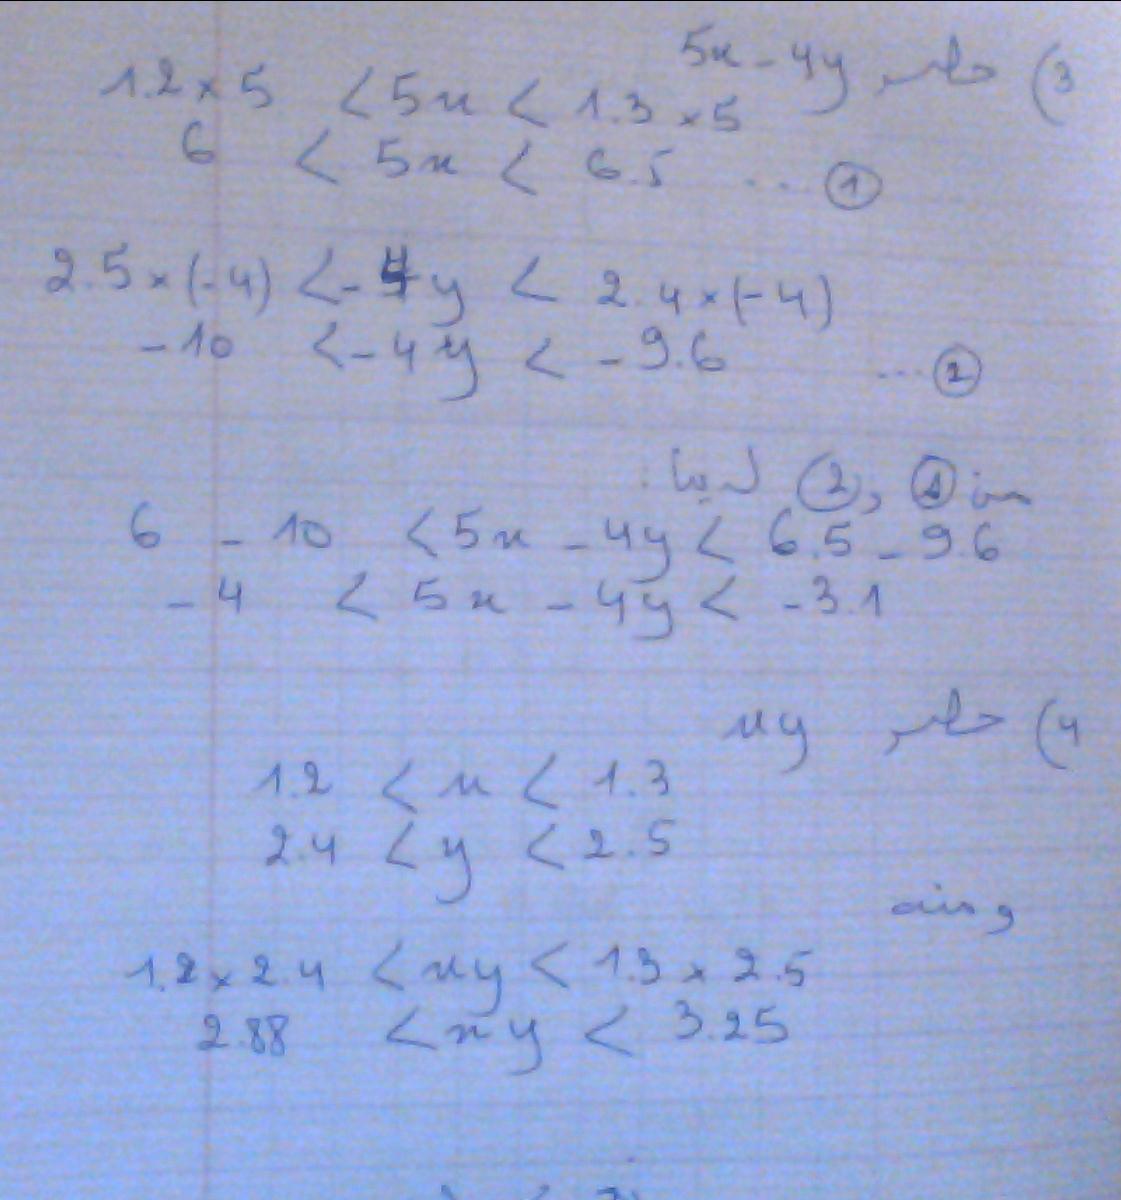 3) حصر 5x - 4y
1.2 × 5 < 5x < 1.3 × 5
6 < 5x < 6.5 ... ①
2.5 × (-4) < -4y < 2.4 × (-4)
-10 < -4y < -9.6 ... ②
من ① و ② لدينا:
6 - 10 < 5x - 4y < 6.5 - 9.6
-4 < 5x - 4y < -3.1
4) حصر xy
1.2 < x < 1.3
2.4 < y < 2.5
ومنه
1.2 × 2.4 < xy < 1.3 × 2.5
2.88 < xy < 3.25